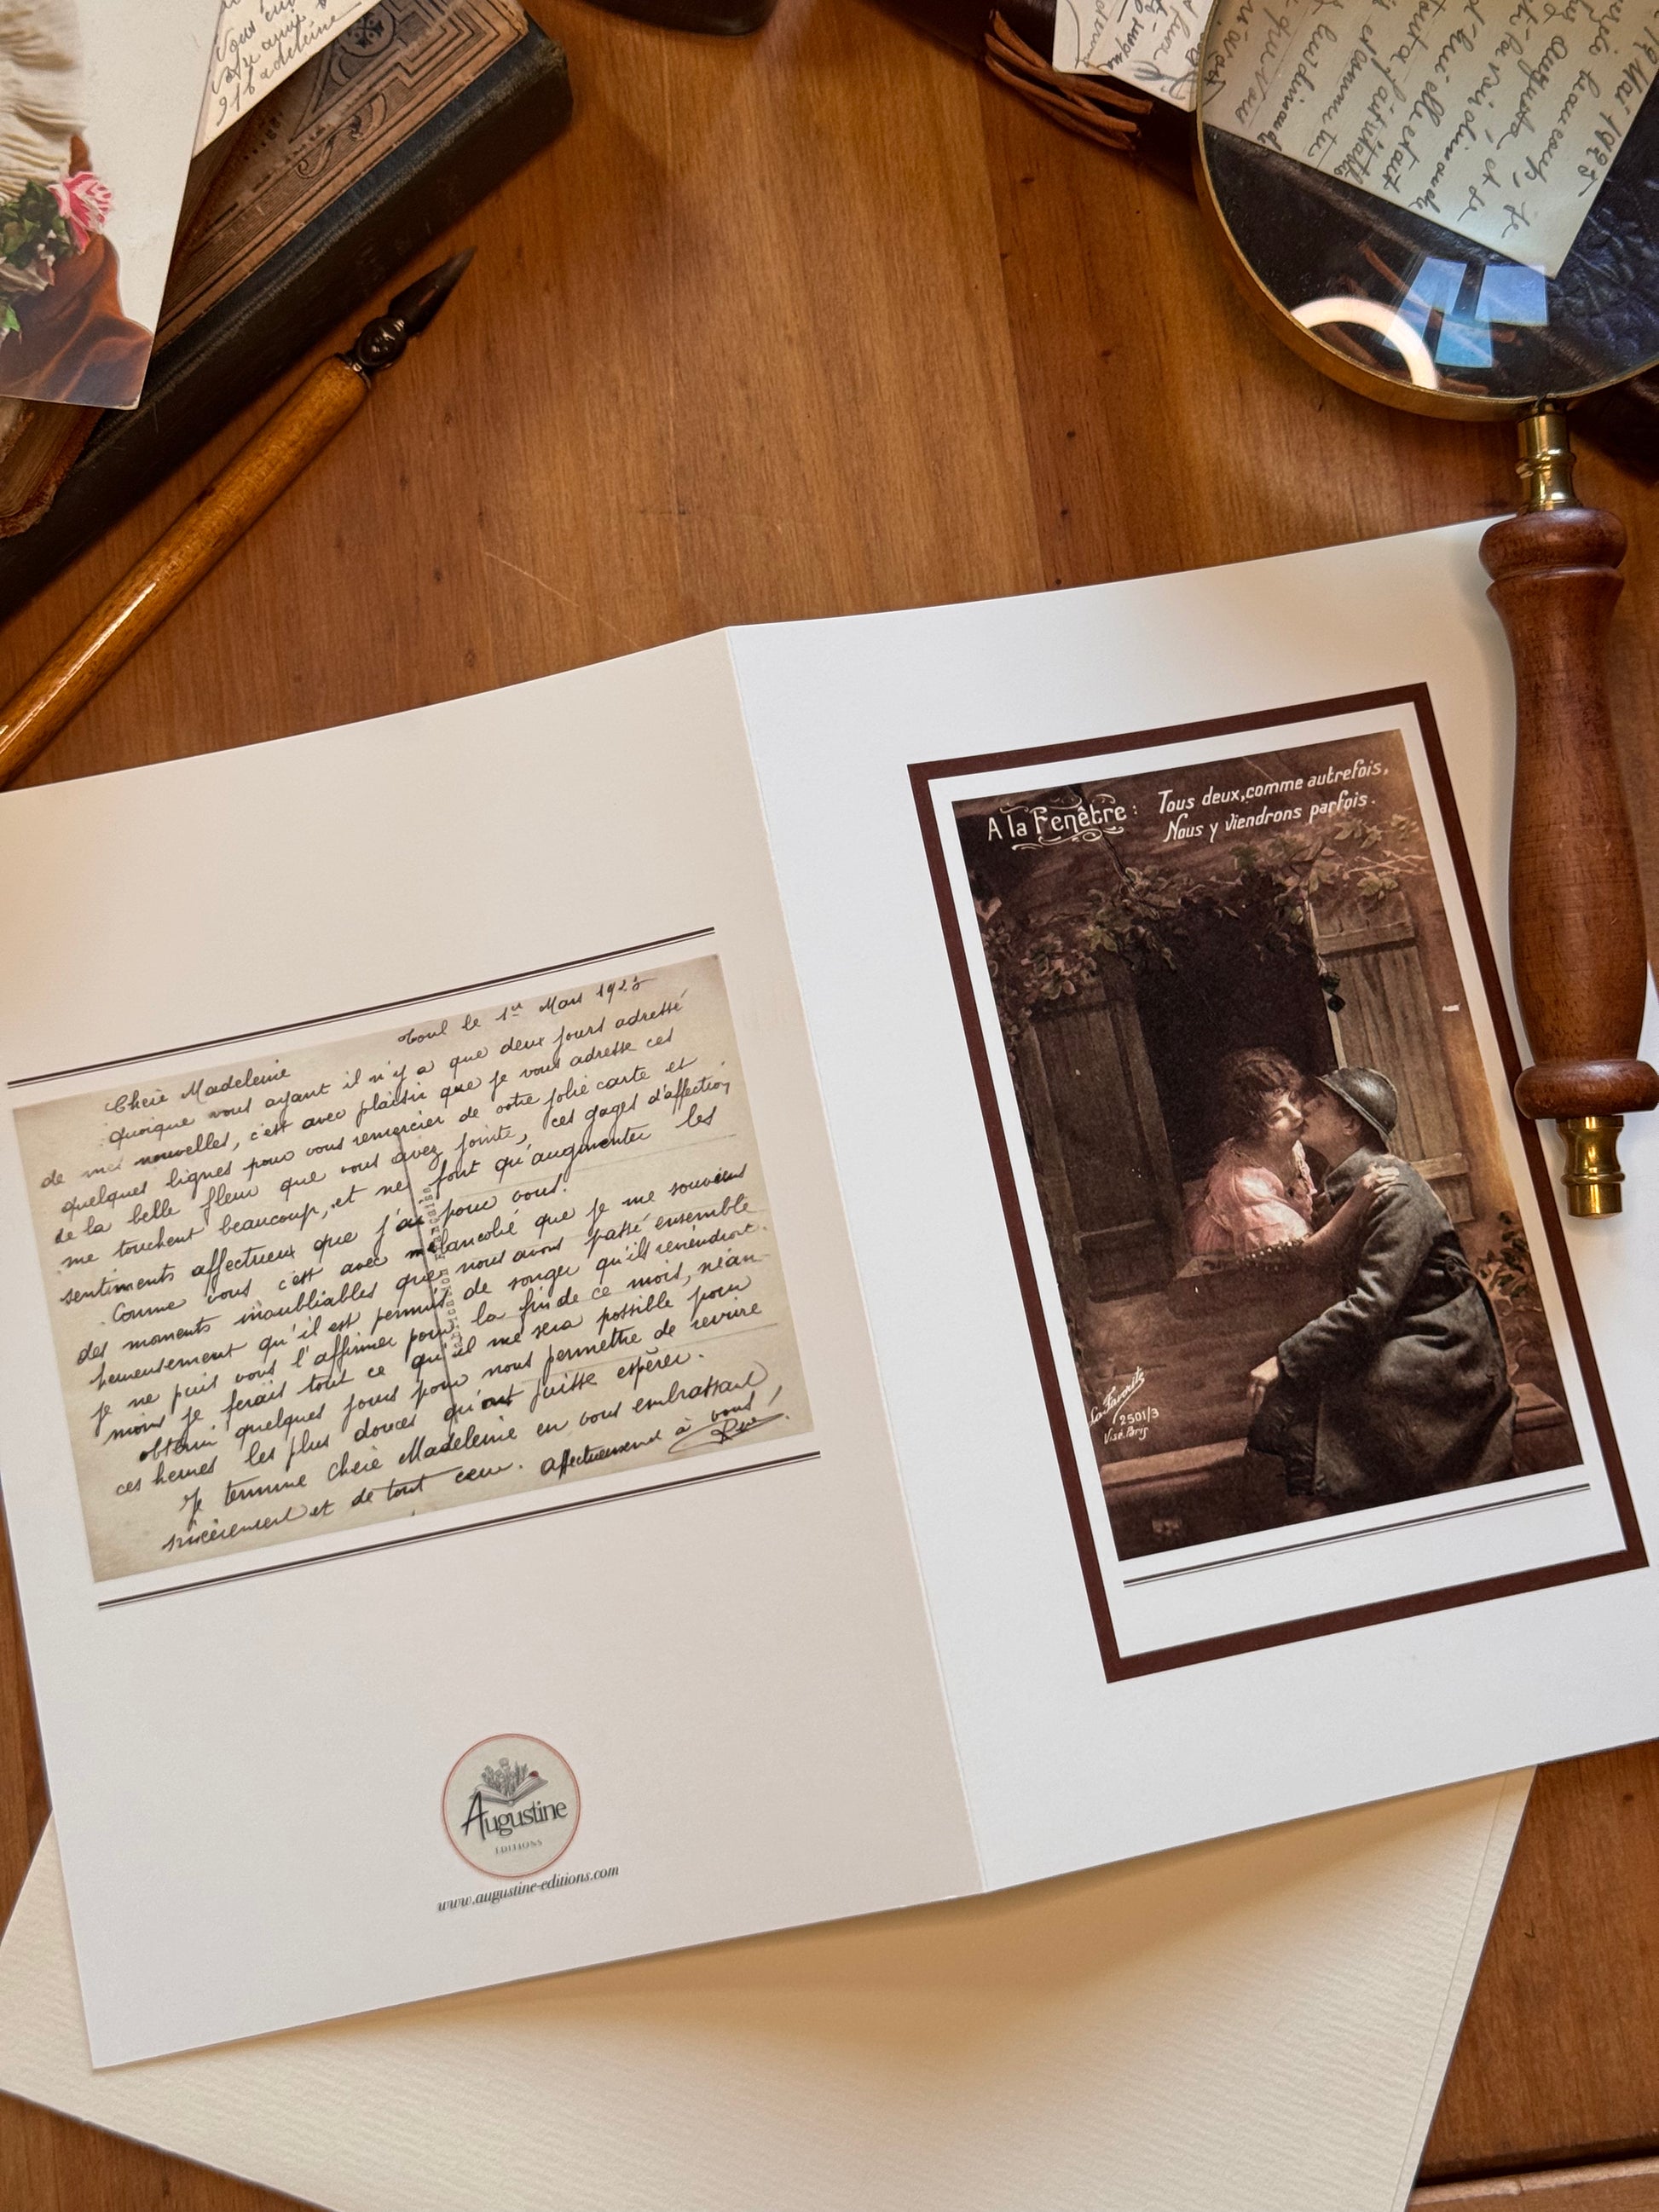 Vous
Madeleine
19 Mai 1925
beaucoup, je
Augusta, et je
dimanche
elle était
comme tu
Toul le 1er Mars 1925
Chère Madeleine
Quoique vous ayant il n'y a que deux jours adressé
de mes nouvelles, c'est avec plaisir que je vous adresse ces
quelques lignes pour vous remercier de votre jolie carte et
de la belle fleur que vous avez jointe, ces gages d'affection,
me touchent beaucoup, et ne font qu'augmenter les
sentiments affectueux que j'ai pour vous.
Comme vous c'est avec mélancolie que je me souviens
des moments inoubliables que nous avons passé ensemble
heureusement qu'il est permis de songer qu'ils reviendront.
je ne puis vous l'affirmer pour la fin de ce mois, néan-
moins je ferais tout ce qu'il me sera possible pour
obtenir quelques jours pour nous permettre de revivre
ces heures les plus douces qu'on puisse espérer.
Je termine Chère Madeleine en vous embrassant
sincèrement et de tout cœur. Affectueusement à vous,
Augustine
EDITIONS
www.augustine-editions.com
A la Fenêtre:
Tous deux, comme autrefois,
Nous y viendrons parfois.
La Favorite
2501/3
Visé. Paris